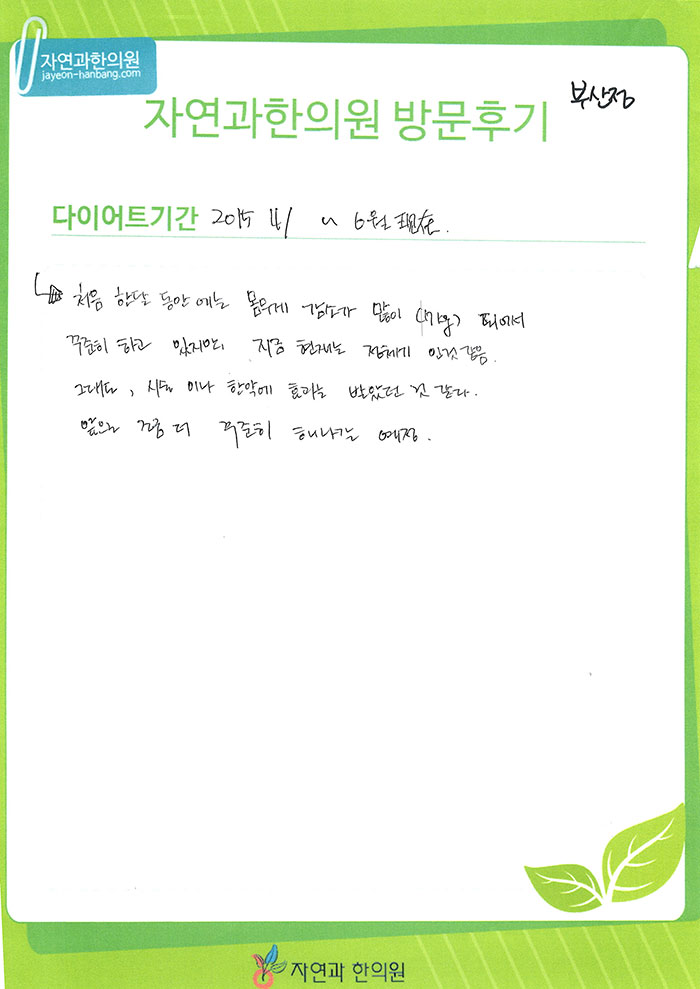 자연과한의원
jayeon-hanbang.com
부산점
자연과한의원 방문후기
다이어트기간 2015 4/ ~ 6월 現在.
처음 한달 동안에는 몸무게 감소가 많이 되어서
꾸준히 하고 있지만 지금 현재는 정체기 인것 같음.
그래도, 시술 이나 한약에 효과는 받았던 것 같다.
앞으로 조금 더 꾸준히 해나가는 예정.
자연과 한의원